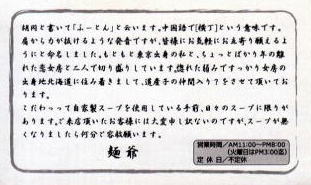 胡同と書いて「ふーとん」と云います。中国語で[横丁]という意味です。
肩から力が抜けるような発音ですが、皆様にお気軽にお立寄り願えるよ
うにと命名しました。もともと東京出身の私と、ちょっとばかり年の離
れた恋女房と二人で切り盛りしています。惚れた弱みですっかり女房の
出身地北海道に住み着きまして、道産子の仲間入り?をさせて頂いてお
ります。
こだわって自家製スープを使用している手前、日々のスープに限りが
あります。ご来店頂いたお客様には大変申し訳ないのですが、スープが無
くなりましたら何分ご容赦願います。
麺爺
営業時間/AM11:00〜PM8:00
(火曜日はPM3:00迄)
定休日/不定休